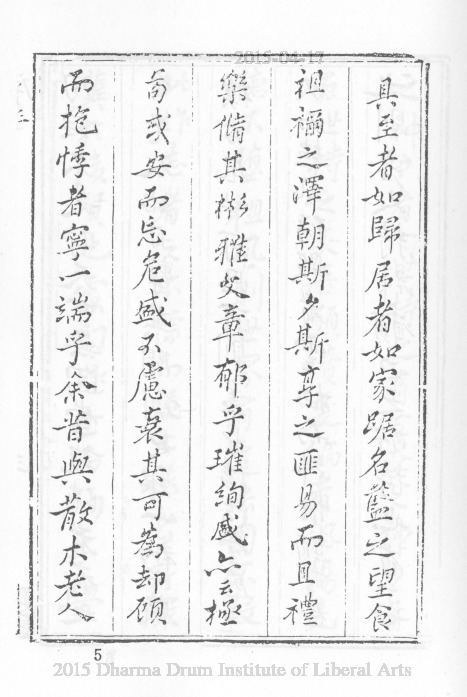 2015-04-17
具至者如歸居者如家踞名藍之望食
祖禰之澤朝斯夕斯享之匪易而且禮
樂備其彬雅文章郁乎璀絢盛亦云極
苟或安而忘危盛不慮衰其可為却顧
而抱悸者寧一端乎余昔與散木老人
5
2015 Dharma Drum Institute of Liberal Arts